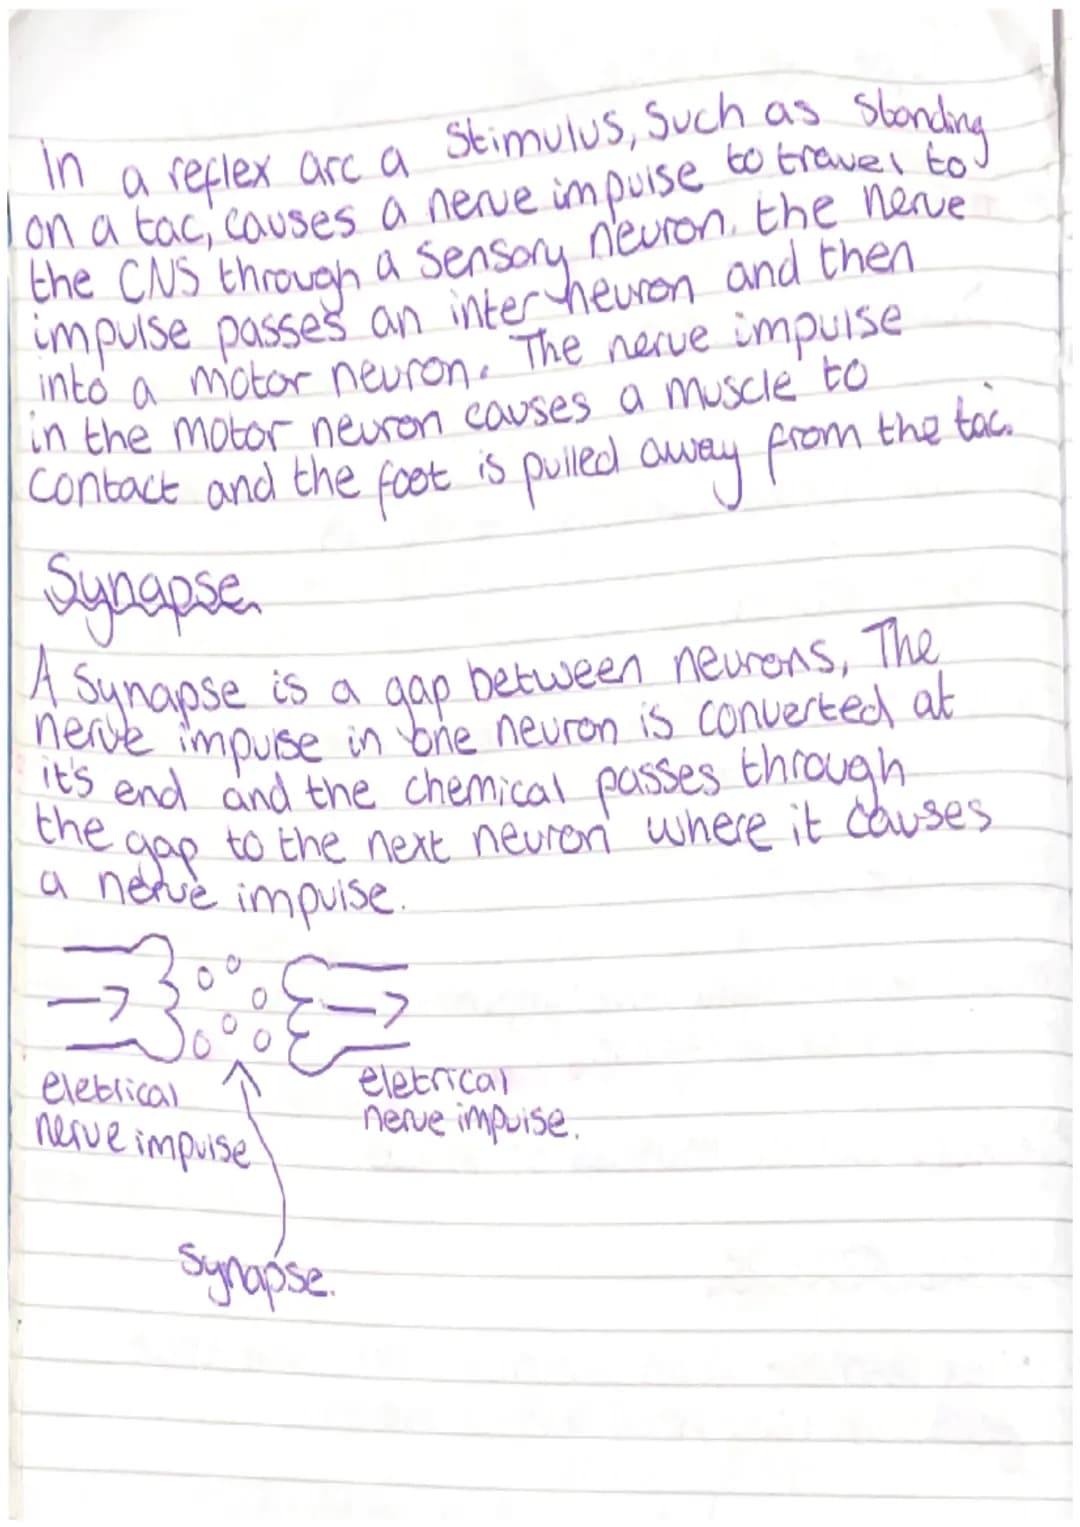 In a reflex arc a Stimulus, Such as Standing
on a tac, causes a nerve impulse to travel to
the CNS through a sensory neuron. the nerve
impulse passes an inter neuron and then
into a motor neuron. The nerve impulse
in the motor neuron causes a muscle to
contact and the foot is pulled away from the tac.
Synapse
A Synapse is a gap between neurons, The
nerve impulse in one neuron is converted at
it's end and the chemical passes through
the gap to the next neuron where it causes
a nerve impulse.
eletrical
nerve impulse
eletrical
nerve impulse.
Synapse.